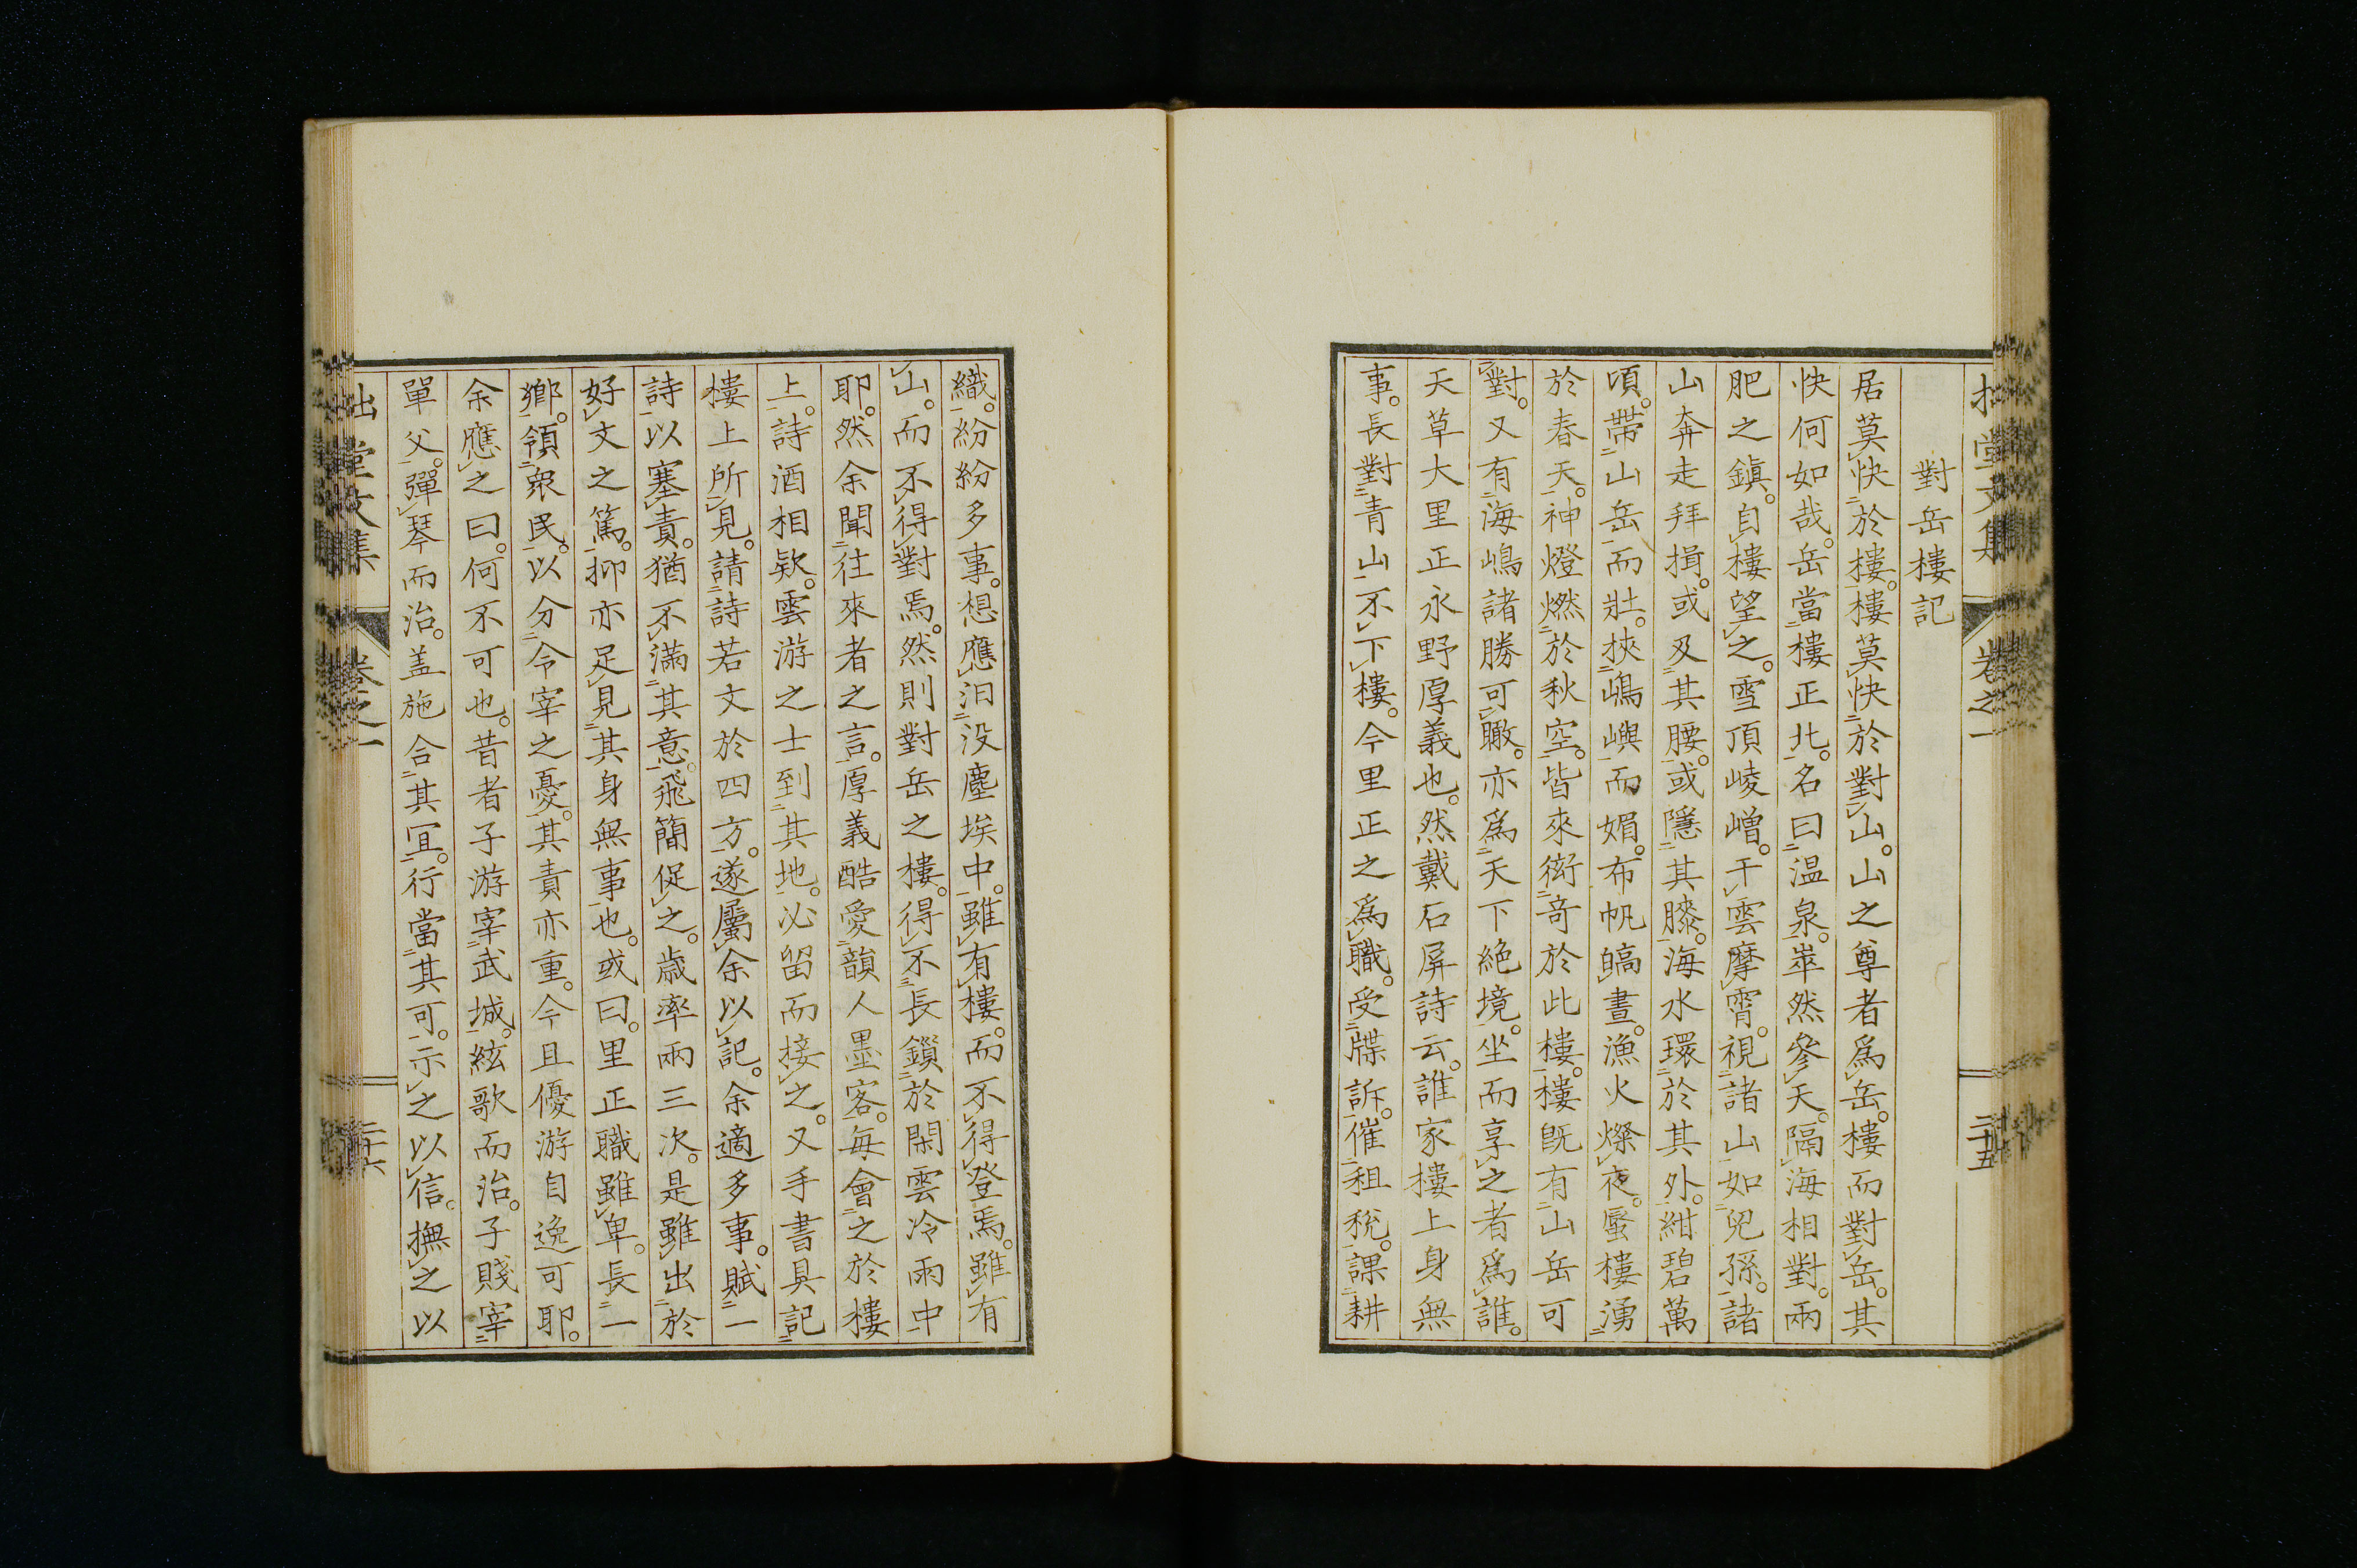 對岳樓記
居莫快於樓。樓莫快於對山。山之尊者爲岳。樓而對岳。其
快何如哉。岳當樓正北。名曰温泉。崒然參天。隔海相對。兩
肥之鎭。自樓望之。雪頂崚嶒。干雲摩霄。視諸山如兒孫。諸
山奔走拜揖。或及其腰。或隱其膝。海水環於其外。紺碧萬
頃。帶山岳而壯。挾嶋嶼而媚。布帆皜晝。漁火燦夜。蜃樓湧
於春天。神燈燃於秋空。皆來衒奇於此樓。樓既有山岳可
對。又有海嶋諸勝可瞰。亦爲天下絶境。坐而享之者爲誰。
天草大里正永野厚義也。然戴石屏詩云。誰家樓上身無
事。長對青山不下樓。今里正之爲職。受牒訴。催租税。課耕
織。紛紛多事。想應汩没塵埃中。雖有樓。而不得登焉。雖有
山。而不得對焉。然則對岳之樓。得不長鎖於閑雲冷雨中
耶。然余聞往來者之言。厚義酷愛韻人墨客。毎會之於樓
上。詩酒相欵。雲游之士到其地。必留而接之。又手書具記
樓上所見。請詩若文於四方。遂屬余以記。余適多事。賦一
詩以塞責。猶不滿其意。飛簡促之。歳率兩三次。是雖出於
好文之篤。抑亦足見其身無事也。或曰。里正職雖卑。長一
鄉。領衆民。以分令宰之憂。其責亦重。今且優游自逸可耶。
余應之曰。何不可也。昔者子游宰武城。絃歌而治。子賤宰
單父。彈琴而治。盖施合其冝。行當其可。示之以信。撫之以
堂文集 卷之一 二十五
堂文集 卷之一 二十六